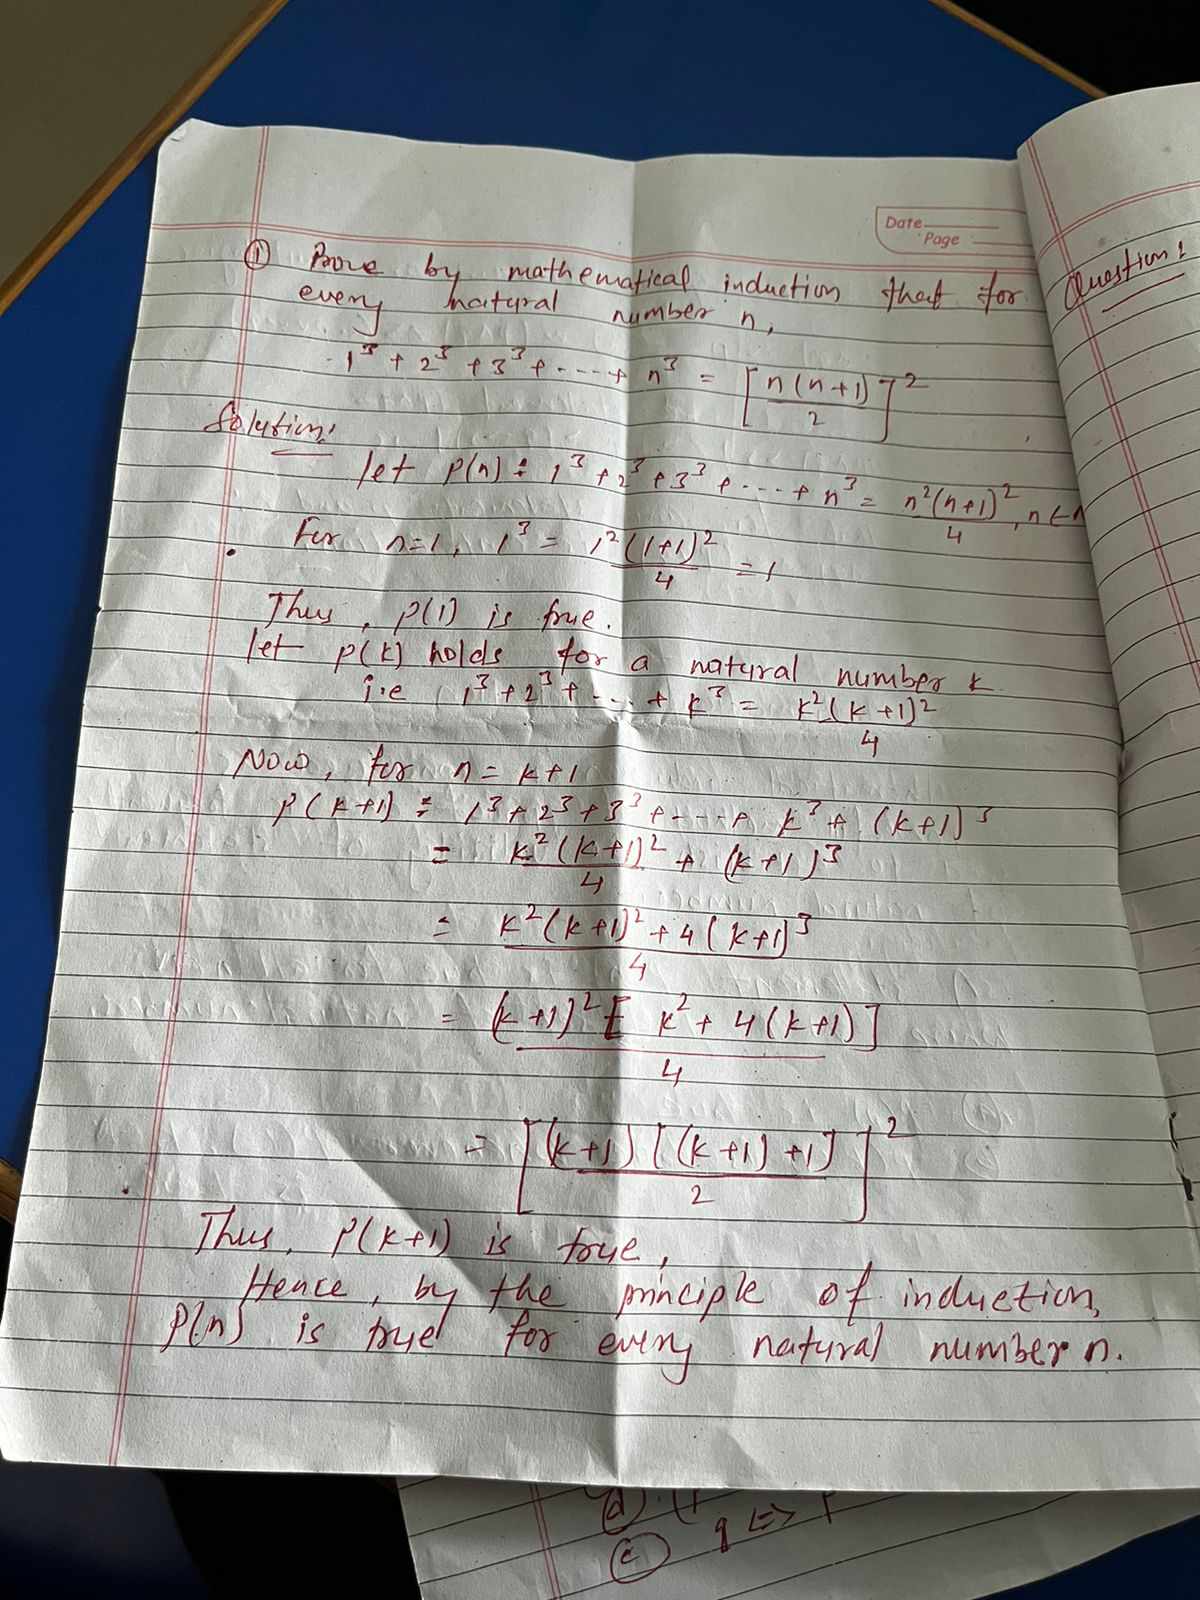 Date
Page
① Prove by mathematical induction that for
every natural number n,
1³ + 2³ + 3³ + ---- + n³ = [n(n+1)/2]²
Solution:
let P(n) : 1³ + 2³ + 3³ + ---- + n³ = n²(n+1)²/4, n ∈
For n=1, 1³ = 1²(1+1)²/4 = 1
Thus, P(1) is true.
let P(k) holds for a natural number k.
i.e 1³ + 2³ + ---- + k³ = k²(k+1)²/4
Now, for n = k+1
P(k+1) : 1³ + 2³ + 3³ + ---- + k³ + (k+1)³
= k²(k+1)²/4 + (k+1)³
= k²(k+1)² + 4(k+1)³/4
= (k+1)²[k² + 4(k+1)]/4
= [(k+1)[(k+1)+1]/2]²
Thus, P(k+1) is true,
Hence, by the principle of induction,
P(n) is true for every natural number n.
Question:
(d)
(e) q <=>